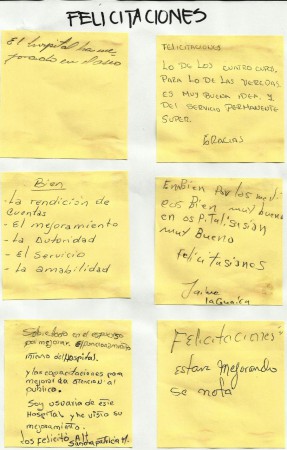 FELICITACIONES
El hospital ha me
jorado en el aseo
FELICITACIONES
LO DE LOS CUATRO CUPOS,
PARA LO DE LAS VEREDAS
ES MUY BUENA IDEA. Y
DEL SERVICIO PERMANENTE
SUPER.
GRACIAS
Bien
- La rendición de
Cuentas
- El mejoramiento
- La Autoridad
- El Servicio
- La amabilidad
Embien Por los
Bien muy buena
en os Pi Tal
muy Bueno
Felicitusiones
Jaime
la Guaica
Sobretodo en el esfuerzo
por mejorar el funcionamiento
interno del Hospital.
y las capacitaciones para
mejorar la atencion al
publico.
Soy usuaria de este
Hospital y he visto su
mejoramiento.
Los felicito Att
Sandra patricia M.
Felicitaciones
estan Mejorando
se nota